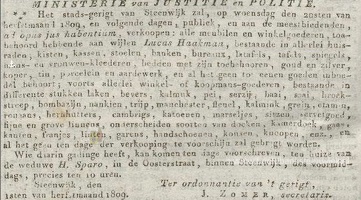 MINISTERIE van JUSTITIE en POLITIE.
** Het stads-gerigt van Steenwijk zal, op woensdag den 20sten van
herfstmaand 1809, en volgende dagen, publiek, en aan de meestbiedenden,
ad opus jus habentium, verkoopen; alle meubilen en winkelgoederen, toe-
behoord hebbende aan wijlen Lucas Haakman, bestaande in allerlei huis-
raden, kisten, kassen, stoelen, banken, bureaux, tafels, spiegels,
mans- en vrouwen-kleederen, bedden met zijn toebehooren, goud en zilver,
koper, tin, porcelein en aardewerk, en al het geen tot eenen goeden inboe-
del behoort; voorts allerlei winkel- of koopmans-goederen, bestaande in
differente stukken laken, bevers, kalmuk, pei, serge, baai, karsaai,
frieze, bombazijn, nanking, trijp, manchester, flenel, kalmink, grein, etamin,
hernhutters, cambraijs, katoenen, matseljes, sitsen, servetgoed,
fijne en grove linnens, onderscheiden soorten van doeken, kamerdoek,
kanten, franjes, linten, garens, handschoenen, kousen, knoopen, enz., en
al het geen ten dage der verkooping te voorschijn zal gebragt worden.
Wie daarin gadinge heeft, kan komen ten dage voorschreven, ten huize van
de weduwe H. Sparo, in de Oosterstraat, binnen Steenwijk, des voormid-
dags, precies ten 10 uren.
Steenwijk, den
Ter ordonnantie van 't gerigt,
1sten van herfstmaand 1809.
J. ZOMER, secretaris.